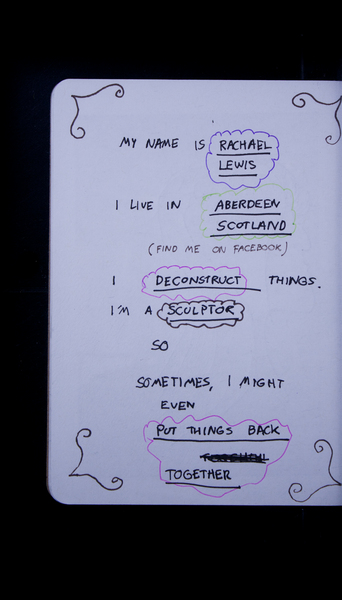 MY NAME IS RACHAEL
LEWIS
I LIVE IN ABERDEEN
SCOTLAND
(FIND ME ON FACEBOOK)
I DECONSTRUCT THINGS.
I'M A SCULPTOR
SO
SOMETIMES, I MIGHT
EVEN
PUT THINGS BACK
TOGETHER